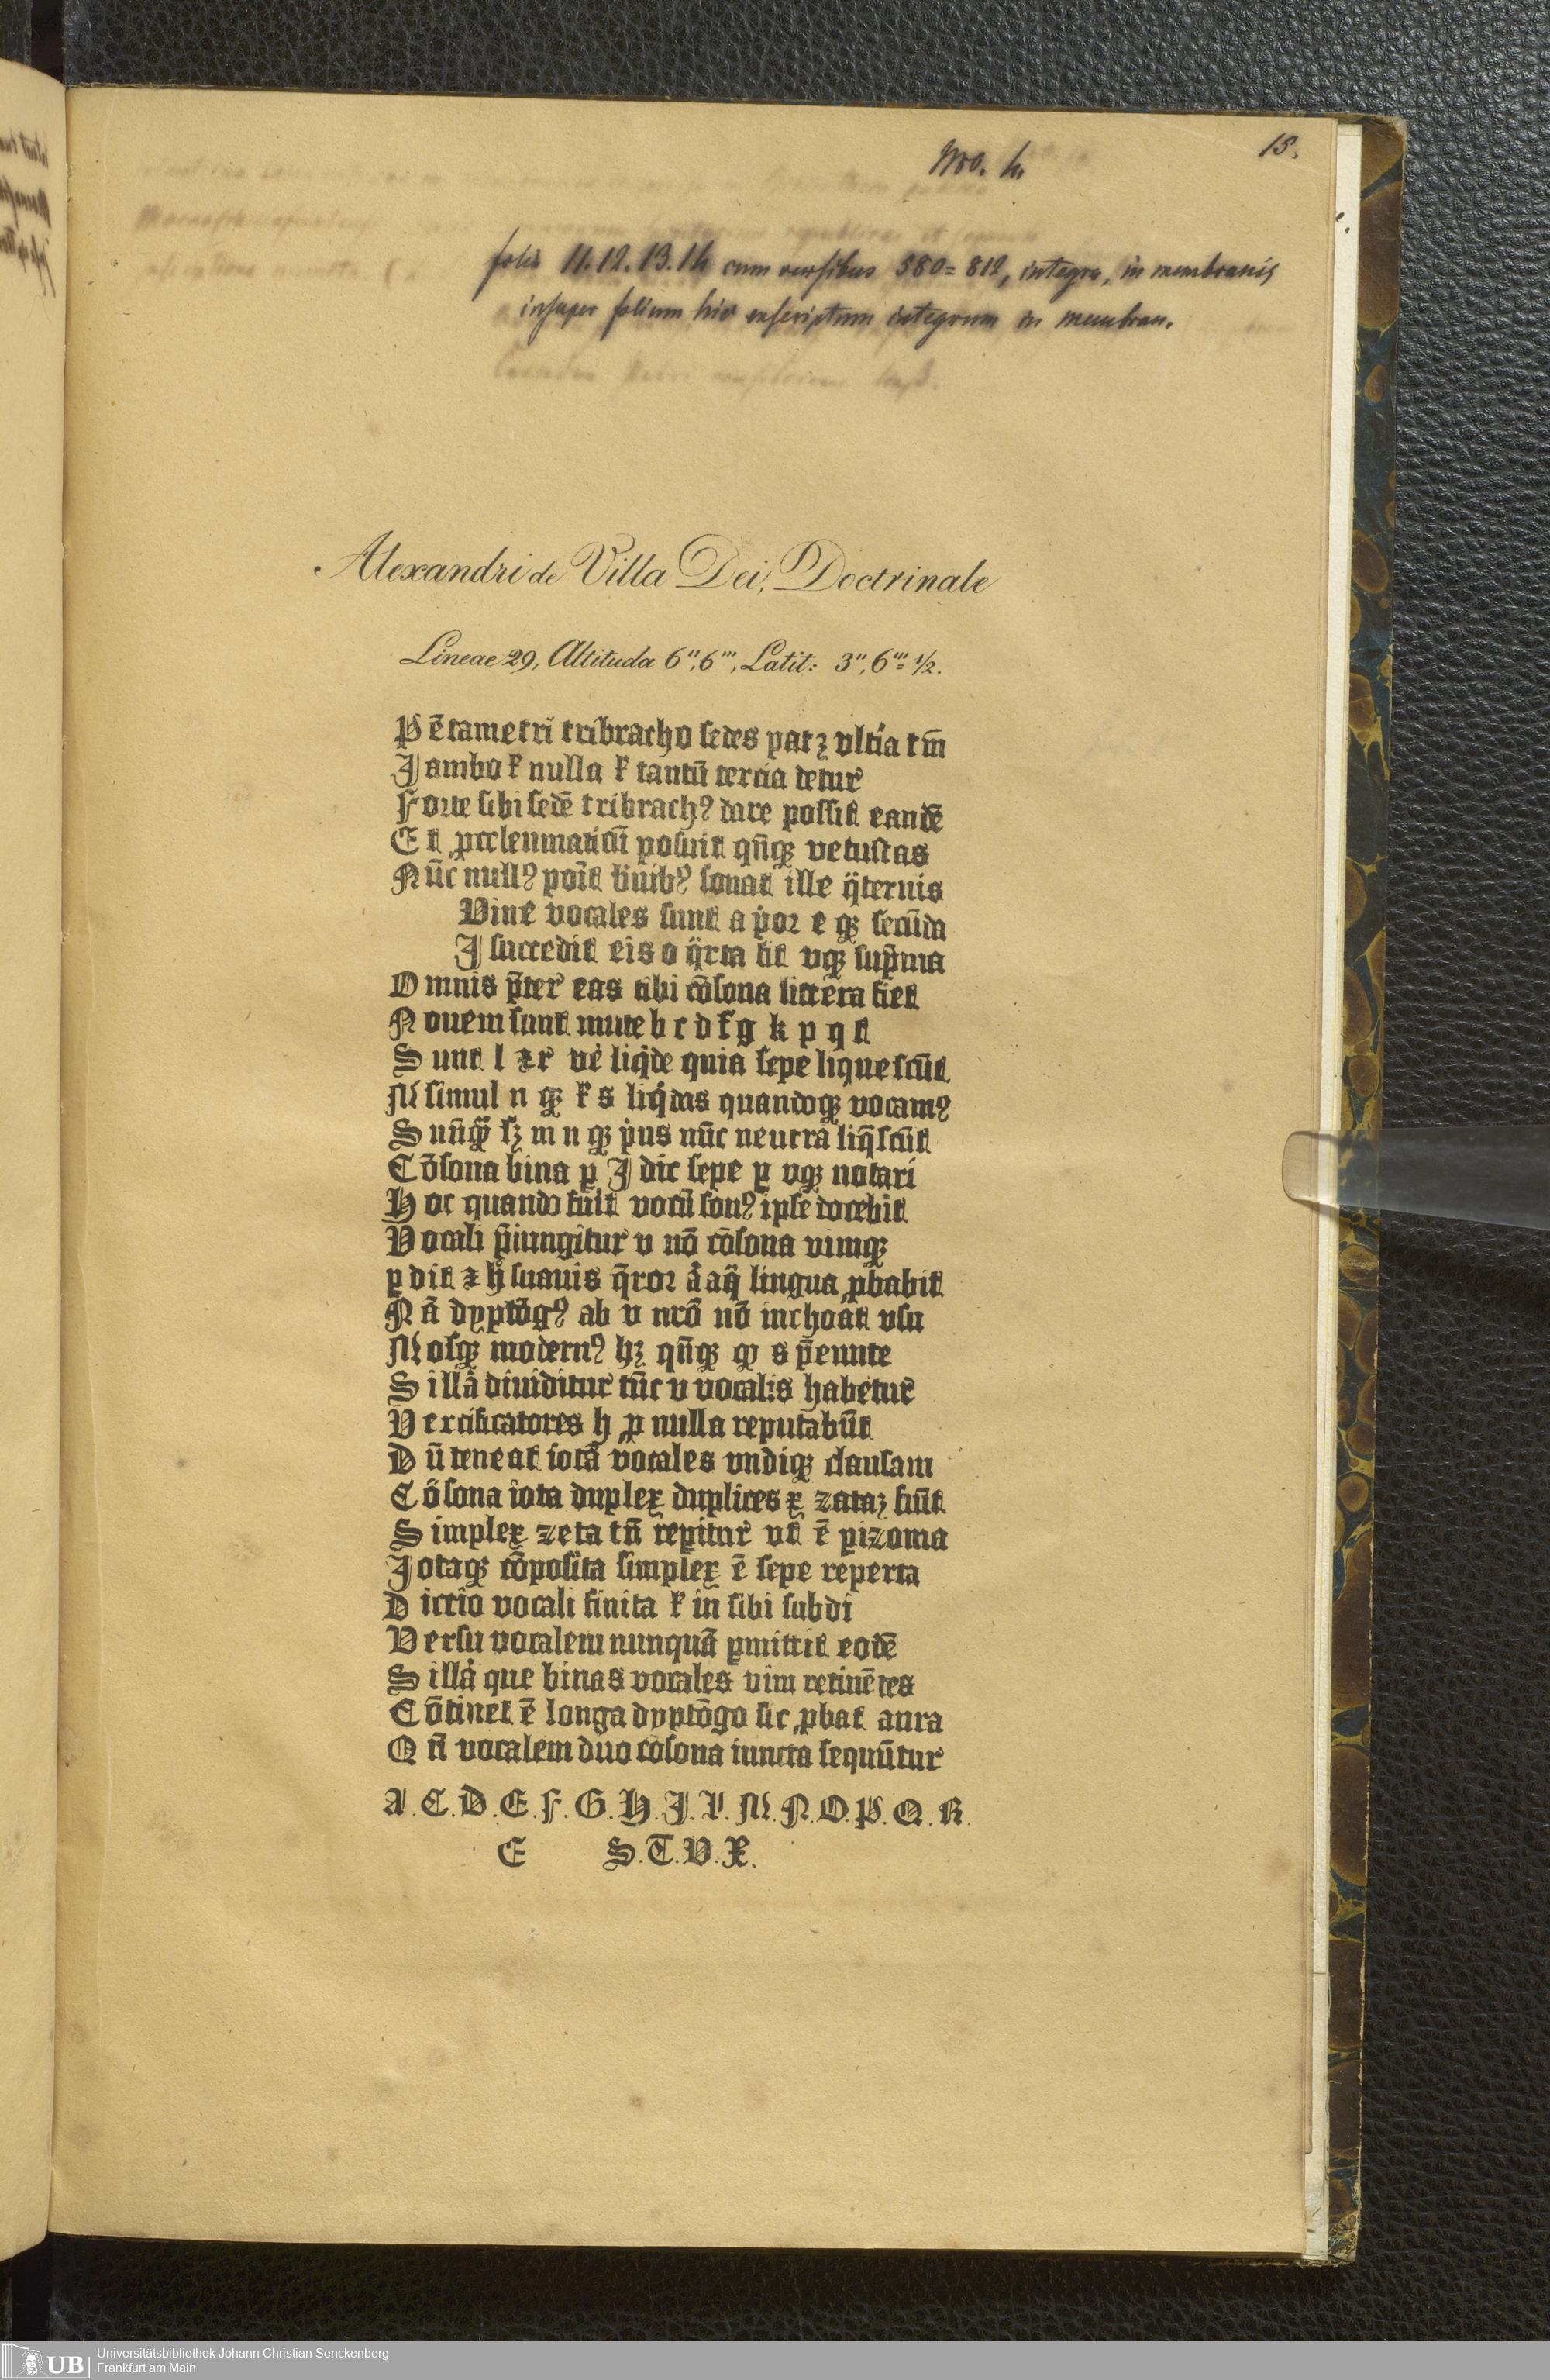 No. 4.
15.
folia 11. 12. 13. 14 cum versibus 580=812, integra, in membranis
insuper folium hic exscriptum integrum in membran.
Alexandri de Villa Dei, Doctrinale
Lineae 29, Altituda 6",6''', Latit: 3",6'''=1/2.
Pētametri tribracho sedes patꝫ vltīa tm̄
Jambo ꝛ nulla ꝛ tantū tercia detur
Forte sibi sedē tribrachꝰ dare possit eandē
Et ꝓceleumaticū posuit qn̄qꝫ vetustas
Nūc nullꝰ poīt bīuibꝰ sonat ille q̈ternis
Viue vocales sunt a p̍or e qꝫ secūda
J succedit eis o q̈rta sit vqꝫ sup̄ma
Omnis p̄ter eas tibi cōsona littera fiet
Nouem sunt mute b c d f g k p q t
Sunt l ꝛ r ve̍ liq̍de quia sepe liquescūt
M simul n qꝫ ꝛ s liq̍das quandoqꝫ vocamꝰ
S nūq̈ sꝫ m n qꝫ p̍us nūc neutra liq̄scūt
Cōsona bina ꝑ J dic sepe ꝑ vqꝫ notari
Hoc quando fuit vocū sonꝰ ipse docebit
Vocali p̄iungitur v nō cōsona vimqꝫ
ꝑdit ꝛ h̍ suauis q̄ror a̍ aq̈ lingua ꝓbabit
Nā dyptōgꝰ ab v nrō nō inchoat vsu
Mosqꝫ modernꝰ hꝫ qn̄qꝫ qꝫ s p̄eunte
Sillā diuiditur tūc v vocalis habetur
Vercificatores h ꝓ nulla reputabūt
Dū teneat iotā vocales vndiqꝫ clausam
Cōsona iota duplex duplices x zetaꝫ fiūt
Simplex zeta tn̄ rep̍itur vt ē pizoma
Jotaqꝫ cōposita simplex ē sepe reperta
Dictio vocali finita ꝛ in sibi subdi
Versu vocalem nunquā ꝑmittit eodē
Sillā que binas vocales vim retinētes
Cōtinet ē longa dyptōgo sic ꝓbat aura
Qn̄ vocalem duo cōsona iuncta sequūtur
A. C. D. E. F. G. H. J. L. M. N. O. P. Q. R.
E S. T. V. X.
UB Universitätsbibliothek Johann Christian Senckenberg
Frankfurt am Main